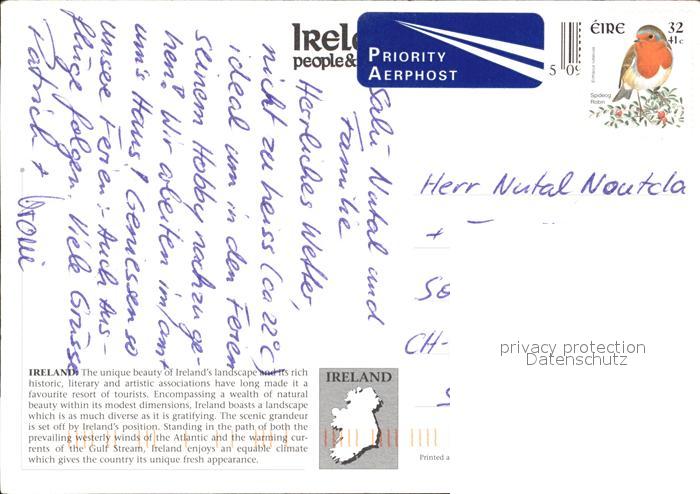 Irel
people &
PRIORITY
AERPHOST
5 09
ÉIRE 32
41c
Spideog
Robin
Salü Nutal und
Familie
Herrliches Wetter,
nicht zu heiss (ca 22°C)
ideal um in den Ferien
seinem Hobby nachzuge-
hen? Wir arbeiten im/am+
um's Haus! Geniessen so
unsere Ferien:- Auch Aus-
flüge folgen. Viele Grüsse
Patrick +
Herr Nutal Noutcla
+
CH-
privacy protection
Datenschutz
IRELAND: The unique beauty of Ireland's landscape and its rich
historic, literary and artistic associations have long made it a
favourite resort of tourists. Encompassing a wealth of natural
beauty within its modest dimensions, Ireland boasts a landscape
which is as much diverse as it is gratifying. The scenic grandeur
is set off by Ireland's position. Standing in the path of both the
prevailing westerly winds of the Atlantic and the warming cur-
rents of the Gulf Stream, Ireland enjoys an equable climate
which gives the country its unique fresh appearance.
IRELAND
Printed a